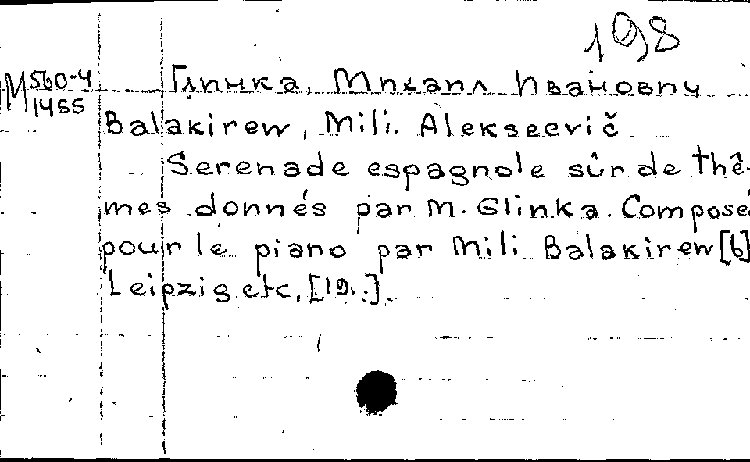 198
М 560-4
1455
Глинка, Михаил Иванович
Balakirew, Mili. Alekseevič
Serenade espagnole sûr de thê-
mes donnés par M. Glinka. Composé
pour le piano par Mili Balakirew [б]
Leipzig etc. [19..].